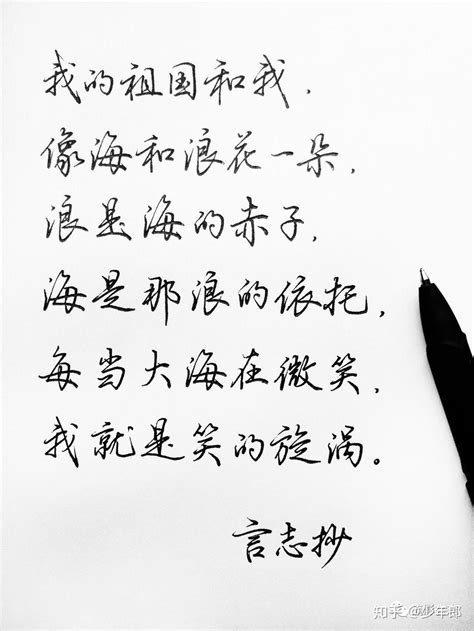 我的祖国和我，
像海和浪花一朵，
浪是海的赤子，
海是那浪的依托，
每当大海在微笑，
我就是笑的旋涡。
言志抄
知乎 @彭年郎